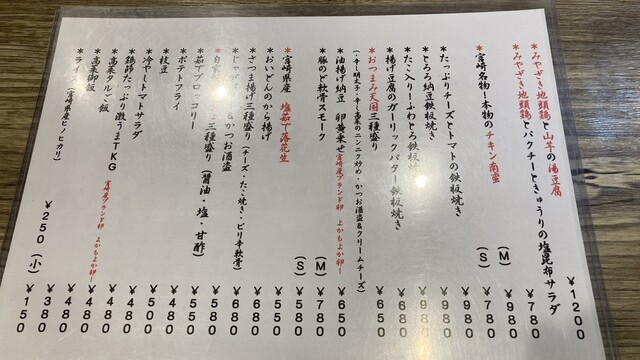 *みやざき地頭鶏と山芋の湯豆腐 ¥1200
*みやざき地頭鶏とパクチーときゅうりの塩昆布サラダ ¥980
*宮崎名物!本物のチキン南蛮 (M) ¥980
(S) ¥780
*たっぷりチーズとトマトの鉄板焼き ¥980
*とろろ納豆鉄板焼き ¥980
*たこ入り!ふわとろ鉄板焼き ¥980
*揚げ豆腐のガーリックバター鉄板焼き ¥680
*おつまみ天国三種盛り ¥650
(・辛し明太子・辛し高菜のニンニク炒め・かつお酒盗&クリームチーズ)
*油揚げ納豆 卵黄乗せ 宮崎産ブランド卵 よかもよか卵ー ¥650
*豚のど軟骨スモーク (M) ¥780
(S) ¥580
*宮崎県産 塩茹で落花生 ¥550
*おいどんのから揚げ ¥680
*さつま揚げ三種盛り (チーズ・たこ焼き・ピリ辛軟骨) ¥680
&かつお酒盗 ¥580
三種盛り (醤油・塩・甘酢) ¥580
*茹でブロッコリー ¥480
*ポテトフライ ¥550
*枝豆 ¥480
*冷やしトマトサラダ ¥550
*鶏節たっぷり激うまTKG ¥480
*高菜タルご飯 宮崎産ブランド卵 よかもよか卵ー ¥480
*高菜御飯 ¥480
*ライス(宮崎県産ヒノヒカリ) ¥380
¥250 (小) ¥150